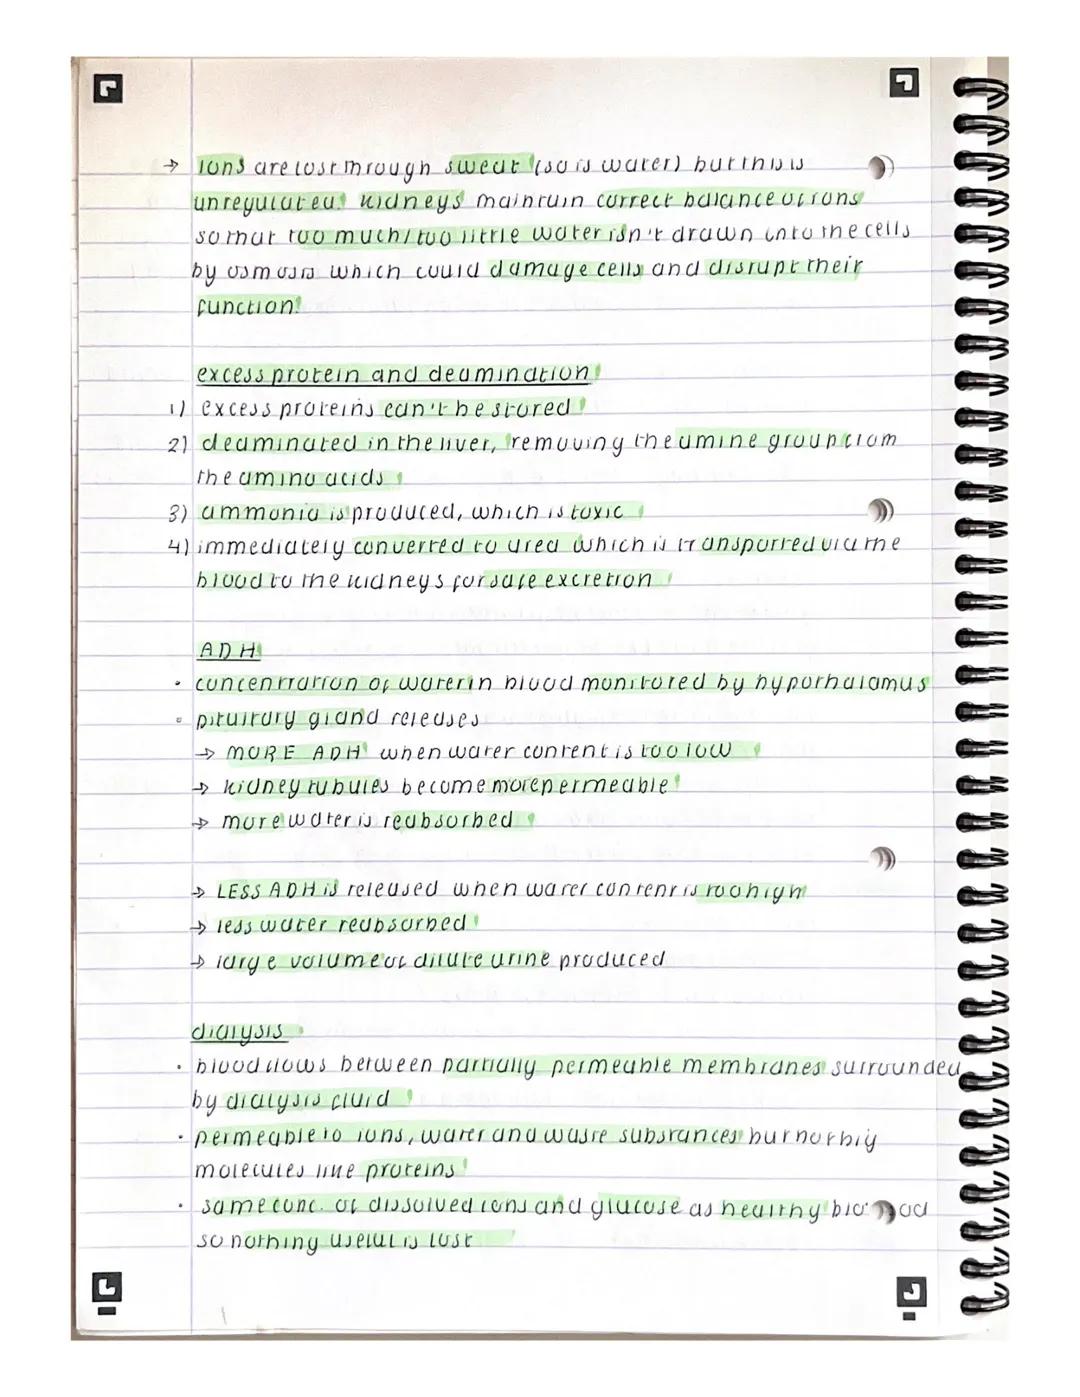 → Ions are lost through sweat (so is water) but this is
unregulated. Kidneys maintain correct balance of ions
so that too much/too little water isn't drawn into the cells
by osmosis which could damage cells and disrupt their
function.
excess protein and deamination
1) excess proteins can't be stored
2) deaminated in the liver, removing the amine group from
the amino acids
3) ammonia is produced, which is toxic
4) immediately converted to urea which is transported via the
blood to the kidneys for safe excretion
ADH
• concentration of water in blood monitored by hypothalamus
• pituitary gland releases
→ MORE ADH when water content is too low
→ kidney tubules become more permeable
→ more water is reabsorbed
→ LESS ADH is released when water content is too high
→ less water reabsorbed
→ large volume of dilute urine produced
dialysis
• blood flows between partially permeable membranes surrounded
by dialysis fluid
• permeable to ions, water and waste substances but not big
molecules like proteins
• same conc. of dissolved ions and glucose as healthy blood
so nothing useful is lost